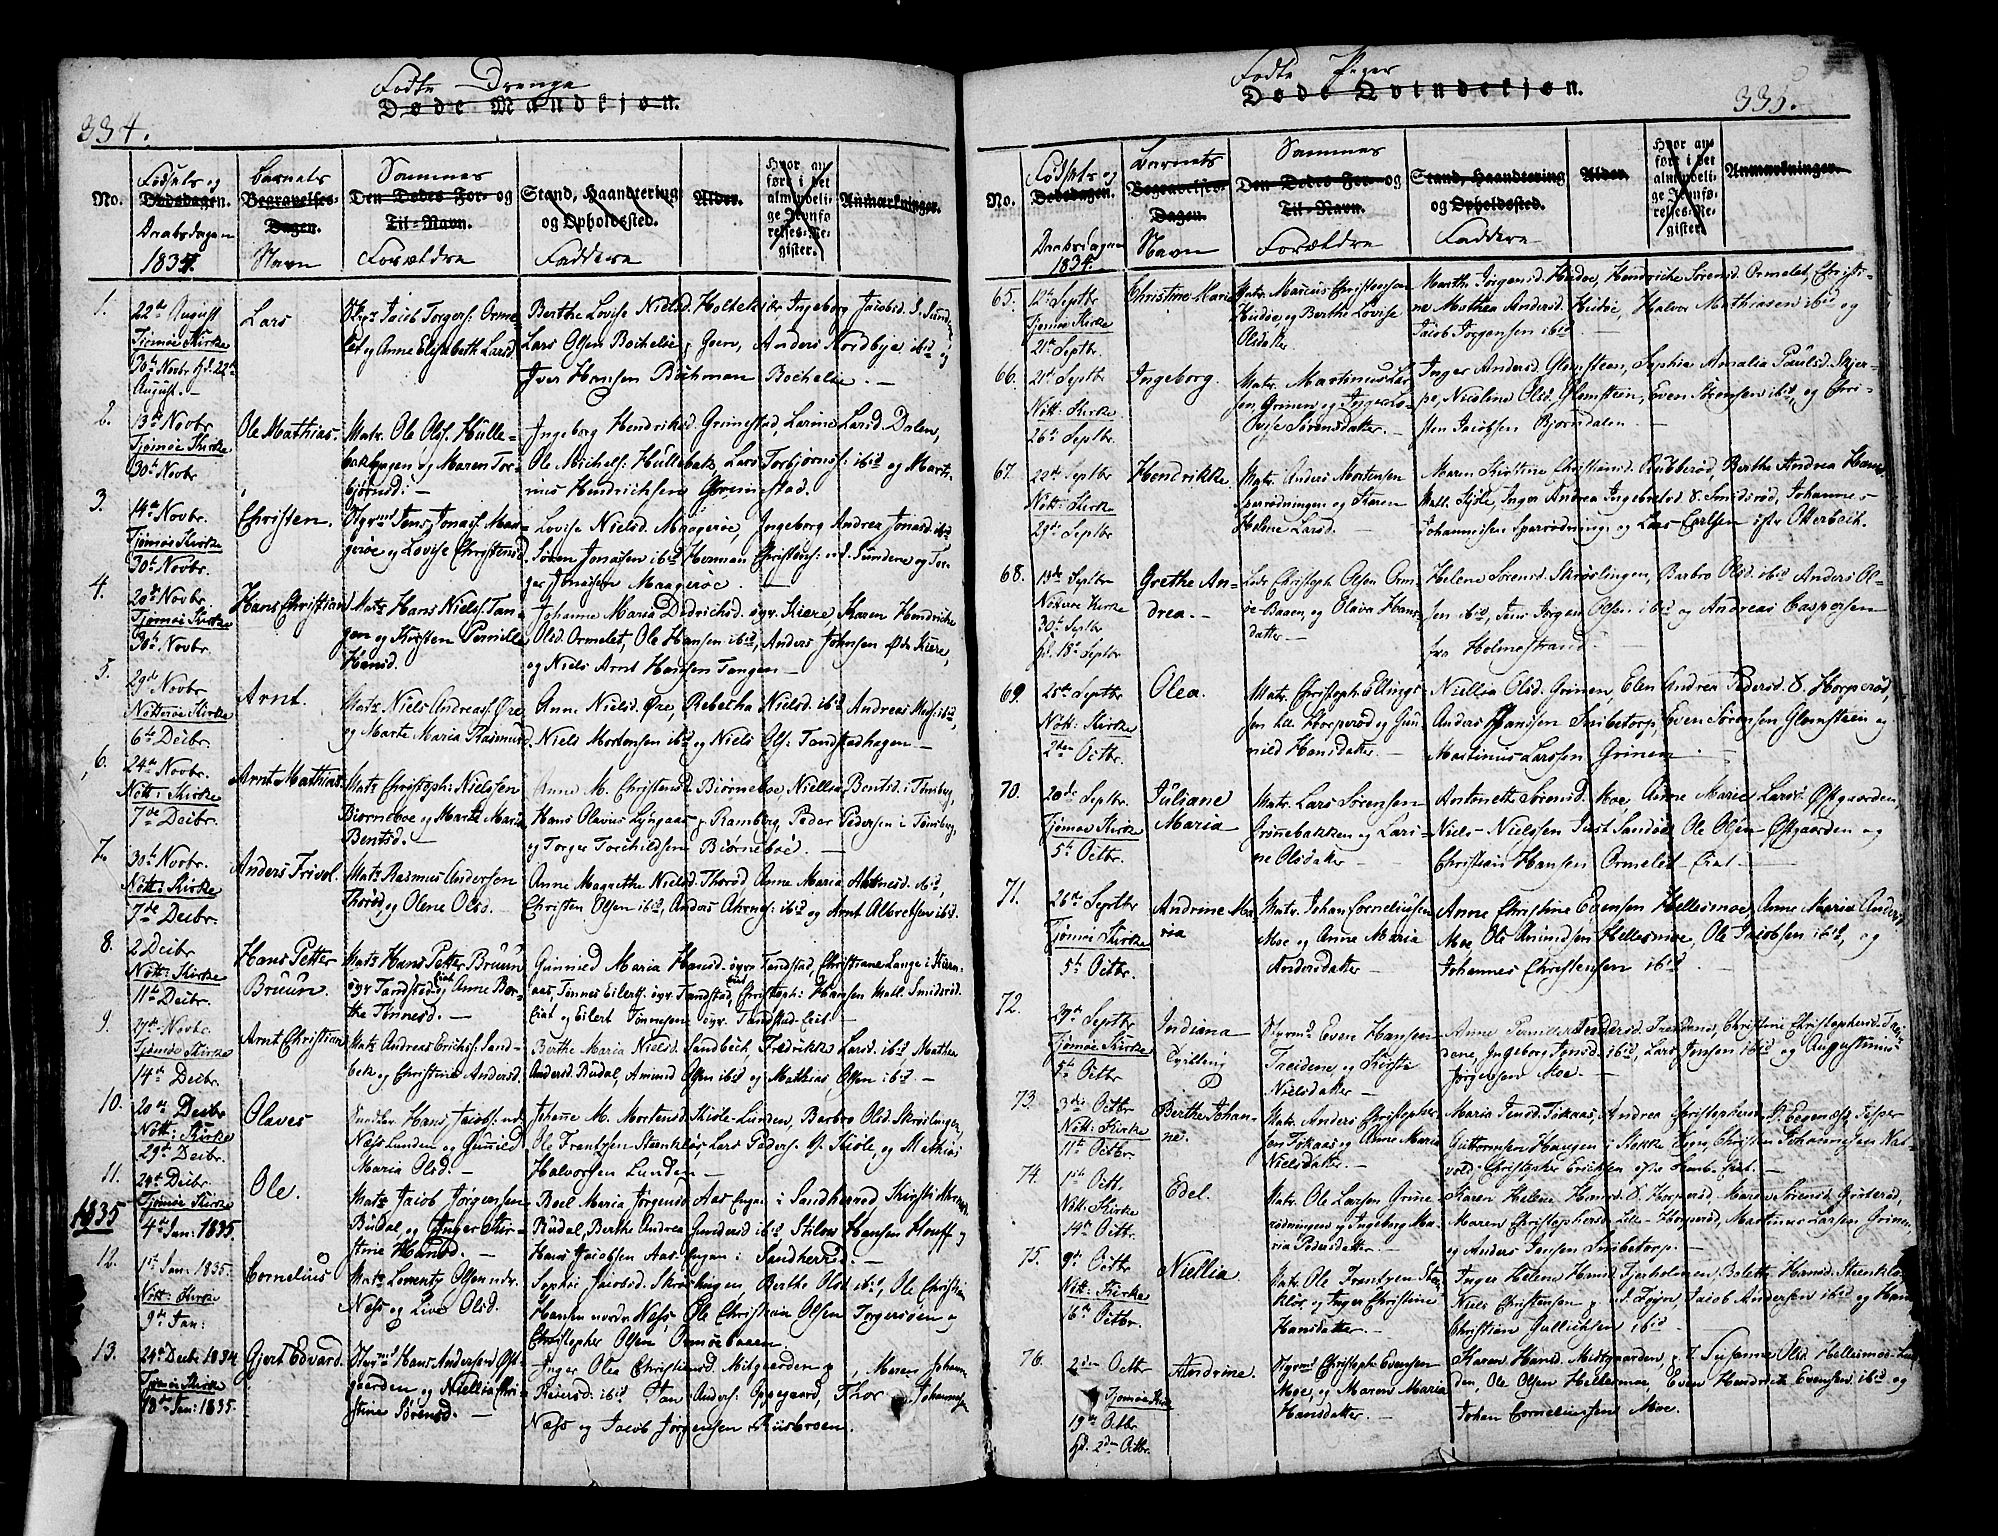 Födte Drenge
Døde Mandkjøn.
334.
No.
Födsels og
Dødsdagen.
Daabsdagen
1834.
Barnets
Begravelses-
Dagen.
Navn
Sammes
Den Dødes For- og
Til-Navn.
Forældre
Stand, Haandtering
og Opholdssted.
Faddere
Alder.
Hvor an-
ført i det
almindeli-
ge Jevnfø-
relses-Re-
gister.
Anmærkninger.
1.
22de August
Tjømøe Kirke
30te Novbr hd. 22de
August.
Lars
Jacob Torger: Orme-
let og Anne Elisabeth Larsd.
Berthe Lovise Nielsd. Holtek Ingeborg Jacobsd. S. Sunde,
Lars Olsen Bochelie, Anders Nordbye ibid og
Iver Hansen Buhman Bochelie. —
2.
13de Novbr
Tjømøe Kirke
30te Novbr
Ole Mathias.
Matr. Ole Ols. Hulle-
bakhougen og Maren Tor-
bjørnsd: —
Ingeborg Hendriksd Grimestad, Larine Larsd. Dalen,
Ole Michels: Hullebak, Lars Torbjørns: ibid og Marti-
nius Hendrichsen Grimestad.
3.
14de Novbr.
Tjømøe Kirke
30te Novbr.
Christen.
Styrmd Jens Jonas: Maa-
gerøe og Lovise Christensd.
Lovise Nielsd. Maagerøe, Ingeborg Andrea Jonasd. ibid
Søren Jonasen ibid Herman Christens: n. Sundene og Tor-
ger Jonasen Maagerøe. —
4.
20de Novbr
Tjømøe Kirke
30te Novbr.
Hans Christian
Matr. Hans Niels. Tan-
gen og Kirsten Pernille
Hansd.
Johanne Maria Didrichsd. Kiere, Karen Hendrichs
Olsd. Ormelet, Ole Hansen ibid, Anders Johnsen Kiere,
og Niels Arnt Hansen Tangen —
5.
29de Novbr
Nötterøe Kirke
6te Decbr.
Arnt.
Matr. Niels Andreas: Øre
og Marte Maria Rasmusd.
Anne Nielsd. Øre, Rebetha Nielsd. ibid, Andreas ibid,
Niels Mortensen ibid og Niels Ols: Tandstadhagen —
6.
24de Novbr.
Nött: Kirke
7de Decbr.
Arnt Mathias.
Matr. Christoph: Nielsen
Biørneboe og Marte Maria
Bentsd. —
Anne M. Christensd. Biørneboe, Niellia Bentsd. i Tønsberg,
Hans Olavius Lyngaas p. Ramberg, Peder Pedersen i Tønsberg,
og Torger Torchildsen Biørneboe. —
7.
30te Novbr.
Nött: Kirke
7de Decbr.
Anders Trivol.
Matr. Rasmus Andersen
Thorød, og Olene Olsd. —
Anne Magrethe Nielsd. Thorød Anne Maria ibid,
Christen Olsen ibid, Anders ibid og Arnt Albretsen ibid.
8.
2 Decbr
Nött: Kirke
11te Decbr.
Hans Petter
Bruun.
Matr. Hans Petter Bruun
Tandstad og Anne Ber-
the Tønnesd. —
Gunnild Maria Hansd. Tandstad, Christiane Lange i
Tønnes Eilert: Tandstad, Christoph: Hansen Matl. Smidsrød
og Eilert Tønnesen Tandstad. —
9.
27de Novbr
Tjømøe Kirke
14de Decbr.
Arnt Christian
Matr. Andreas Erichs: Sand-
bek og Christine Andersd.
Berthe Maria Nielsd. Sandbech, Fredrikke Larsd. ibid Mathea
Andersd. Budal, Amund Olsen ibid og Mathias Olsen ibid. —
10.
20de Decbr
Nött: Kirke
29de Decbr.
Olaves
Hans Jacobs:
Næss Lunden og Gunild
Maria Olsd. —
Johanne M. Mortensd. Kiøle-Lunden, Barbro Olsd. Skrøslingen,
Ole Frantzsen Steenkløs, Lars Peders. Kiøle, og Mathias
Halvorsen Lunden —
11.
24de Decbr.
Tjømøe Kirke
4de Jan: 1835.
1835
Ole.
Matr. Jacob Jørgensen
Budal, og Inger Kir-
stine Hansd. —
Boel Maria Jørgensd. Aas Engen i Sandherred, Kirsti
Budal, Berthe Andrea Gundersd. ibid Hansen Hauff og
Hans Jacobsen Aas-Engen i Sandherred. —
12.
1ste Jan: 1835.
Nött: Kirke
9de Jan:
Cornelius
Matr. Lorentz Olsen ndr.
Næss og Live Olsd.
Sophie Jacobsd. Skrøslingen, Berthe Olsd. ibid, Ole Christian
Hansen nordre Næss, Ole Christian Olsen Torgersøen og
Christopher Olsen Ormøebaaen.
13.
24de Decbr 1834
Tjømøe Kirke
18de Jan: 1835.
Gjert Edvard
Styrmd Hans Andersen Øst-
gaarden og Niellia Chri-
stine Sørensd. —
Inger Olea Christiansd. Mitgaarden og Maren
Reiersd. ibid, Jan Anders: Oppegaard, Thor Johannesen
Næss og Jacob Jørgensen Rusbroen.
Födte Piger
Døde Qvindekjøn.
335.
No.
Födsels og
Dødsdagen.
Daabsdagen
1834.
Barnets
Begravelses-
Dagen.
Navn
Sammes
Den Dødes For- og
Til-Navn.
Forældre
Stand, Haandtering
og Opholdssted.
Faddere
Alder.
Hvor an-
ført i det
almindeli-
ge Jevnfø-
relses-Re-
gister.
Anmærkninger.
65.
12te Septbr
Tjømøe Kirke
21de Septbr.
Christine Marie
Matr. Marcus Christensen
Hudøe og Berthe Lovise
Olsdatter
Marthe Jørgensd. Hudøe, Hendriche Sørensd. Ormelet, Christi-
ne Mathea Andersd. Hudøe, Halvor Mathiasen ibid og
Jacob Jørgensen ibid. —
66.
21de Septbr.
Nött: Kirke
26de Septbr.
Ingeborg.
Matr. Martinus Lar-
sen, Grimen, og Inger Lo-
vise Sørensdatter. —
Inger Andersd. Glomsteen, Sophia Amalia Paulsd. Skjer-
pe, Nicoline Olsd. Glomstein, Even Sørensen ibid, og Chri-
sten Jacobsen Bjørnsdalen. —
67.
22de Septbr
Nött: Kirke
29de Septbr
Hendrikke.
Matr. Anders Mortensen
Sparrødningen og Karen
Helene Larsd.
Maren Kirstine Christiansd. Rubberød, Berthe Andrea Hans
Matl. Kjøle, Inger Andrea Ingebretsd. S. Smidsrød, Johannes
Johannesen Sparrødning og Lars Carlsen Otterbeck.
68.
13de Septbr
Nötterøe Kirke
30te Septbr
hd. 18de Septbr
Grethe An-
drea. —
Lods Christoph Olsen Orm-
øe-Baaen, og Olava Hans-
datter —
Helene Sørensd. Skrøslingen, Barbro Olsd. ibid Anders Ol-
sen ibid, Jens Jørgen Olsen ibid og Andreas Caspersen
fra Holmestrand. —
69.
25de Septbr
Nött: Kirke
2den Octbr.
Olea.
Matr. Christoph. Ellings
sen Horperød og Gun-
nild Hansdatter. —
Niellia Olsd. Grimen, Elen Andrea Pedersd. S. Horperød,
Anders Hansen Snibetorp, Even Sørensen Glomstein og
Martinus Larssen Grimen —
70.
20de Septbr.
Tjømøe Kirke
5te Octbr.
Juliane
Maria
Matr. Lars Sørensen
Grönebakken og Lars-
ne Olsdatter —
Antonette Sørensd. Moe, Anne Marie Larsd. Østgaarden,
Niels Nielssen Just Sandøe, Ole Olsen Østgaarden og
Christian Hansen Ormelet. —
71.
26de Septbr
Tjømøe Kirke
5te Octbr.
Andrine Ma-
ria
Matr. Johan Corneliussen
Moe og Anne Maria
Andersdatter —
Anne Christine Evensen Hellesmoe, Anne Maria Andersd.
Moe, Ole Amundsen Hellesmoe, Ole Jacobsen ibid, og
Johannes Christensen ibid. —
72.
29de Septbr
Tjømøe Kirke
5te Octbr.
Indiana
Tvilling
Styrmd Even Hansen
Treidene, og Kirstine
Nielsdatter —
Anne Pernille Pedersd. Treidene, Christine Christophersd. Trei-
dene, Ingeborg Jensd. ibid, Lars Jensen ibid og Augustinus
Jørgensen Moe. —
73.
3die Octbr
Nött: Kirke
11te Octbr.
Berthe Johan-
ne.
Matr. Anders Christopher-
sen Tokaas og Anne Maria
Nielsdatter. —
Maria Jensd. Tokaas, Andrea Christophersd. P. Eegenæs, Jesper
Guttormsen Haugen i Stokke Sogn, Christen Johannesen Nat-
vold. Christopher Erichsen
74.
1ste Octbr.
Nött: Kirke
14de Octbr.
Edel.
Matr. Ole Larsen Grime-
rødningen og Ingeborg Ma-
ria Pedersdatter. —
Karen Helene Hansd. S. Horperød, Maren Sørensd. Grimerød,
Maren Christophersd. Lille-Horperød, Martinus Larsen Grimen,
og Anders Jensen Snibetorp. —
75.
9de Octbr
Nött: Kirke
16de Octbr.
Niellia.
Matr. Ole Frantzen Steen-
kløs og Inger Christine
Hansdatter. —
Inger Helene Hansd. Fjærholmen, Bolette Hansd. Steenkløs,
Niels Christensen Føyen, Jacob Andersen ibid og Hans
Christian Gullichsen ibid
76.
2den Octbr
Tjømøe Kirke
19de Octbr
hd. 2den Octbr.
Andrine.
Styrmd Christoph. Evensen
Moe, og Maren Maria
Hansdatter. —
Karen Hansd. Mitgaarden, Susanne Olsd. Hellesmoe-Lun-
den, Ole Olsen Hellesmoe, Even Hendrich Evensen ibid og
Johan Corneliussen Moe. —